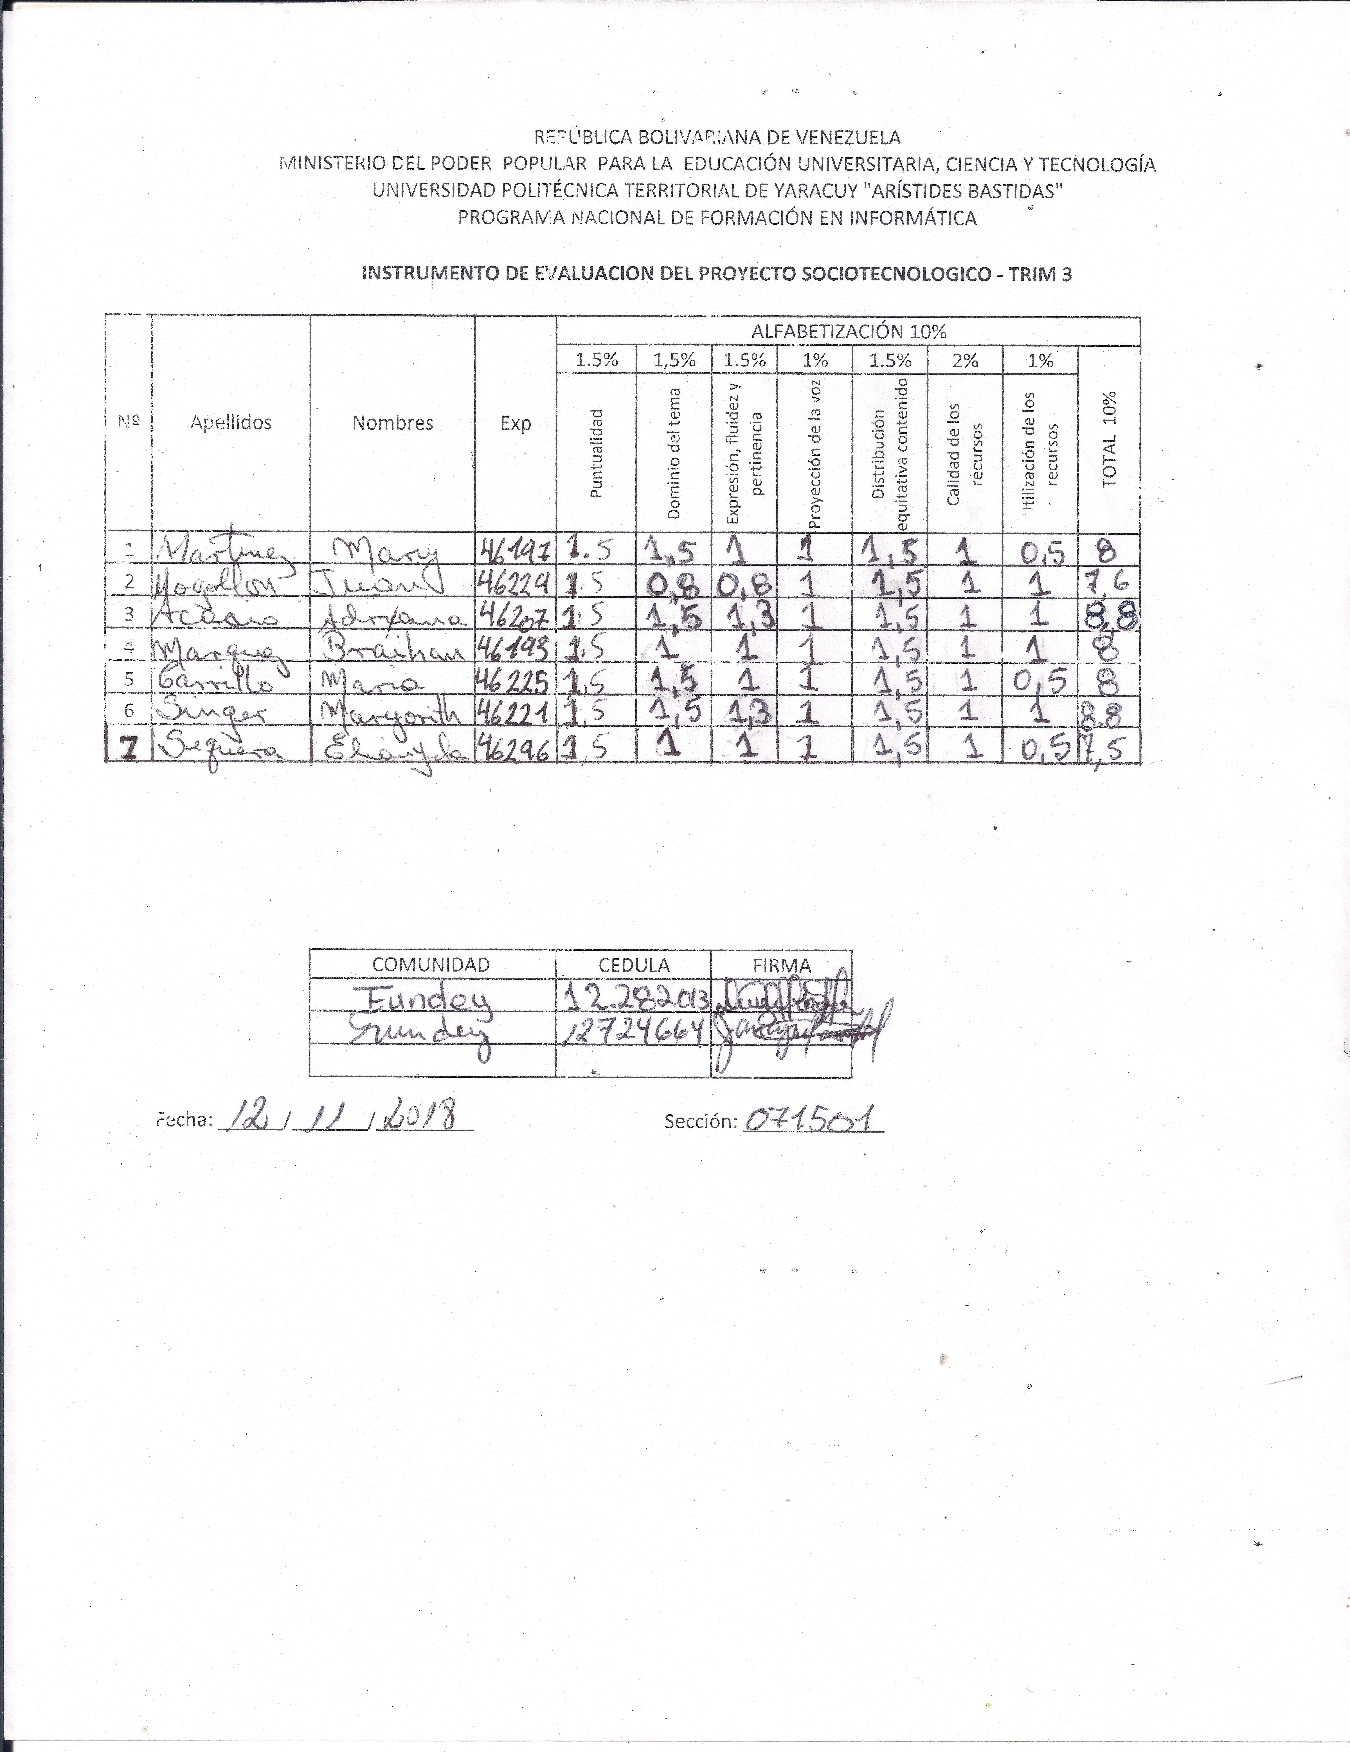 REPÚBLICA BOLIVARIANA DE VENEZUELA
MINISTERIO DEL PODER POPULAR PARA LA EDUCACIÓN UNIVERSITARIA, CIENCIA Y TECNOLOGÍA
UNIVERSIDAD POLITÉCNICA TERRITORIAL DE YARACUY "ARÍSTIDES BASTIDAS"
PROGRAMA NACIONAL DE FORMACIÓN EN INFORMÁTICA
INSTRUMENTO DE EVALUACION DEL PROYECTO SOCIOTECNOLOGICO - TRIM 3
ALFABETIZACIÓN 10%
1.5% 1,5% 1.5% 1% 1.5% 2% 1%
Nº Apellidos Nombres Exp Puntualidad Dominio del tema Expresión, fluidez y pertinencia Proyección de la voz Distribución equitativa contenido Calidad de los recursos tilización de los recursos TOTAL 10%
1 Martinez Mary 46197 1.5 1,5 1 1 1,5 1 0,5 8
2 Mogollon Juan 46224 1.5 0,8 0,8 1 1,5 1 1 7,6
3 Adryana 46207 1.5 1,5 1,3 1 1,5 1 1 8,8
4 Marquez Braihan 46193 1.5 1 1 1 1,5 1 1 8
5 Carrillo Maria 46225 1,5 1,5 1 1 1,5 1 0,5 8
6 Singer Margorith 46221 1,5 1,5 1,3 1 1,5 1 1 8.8
7 Sequera Eliangela 46296 1.5 1 1 1 1,5 1 0,5 7,5
COMUNIDAD CEDULA FIRMA
Fundey 12.282.013
Fundey 12724664
Fecha: 12 / 11 / 2018 Sección: 071501